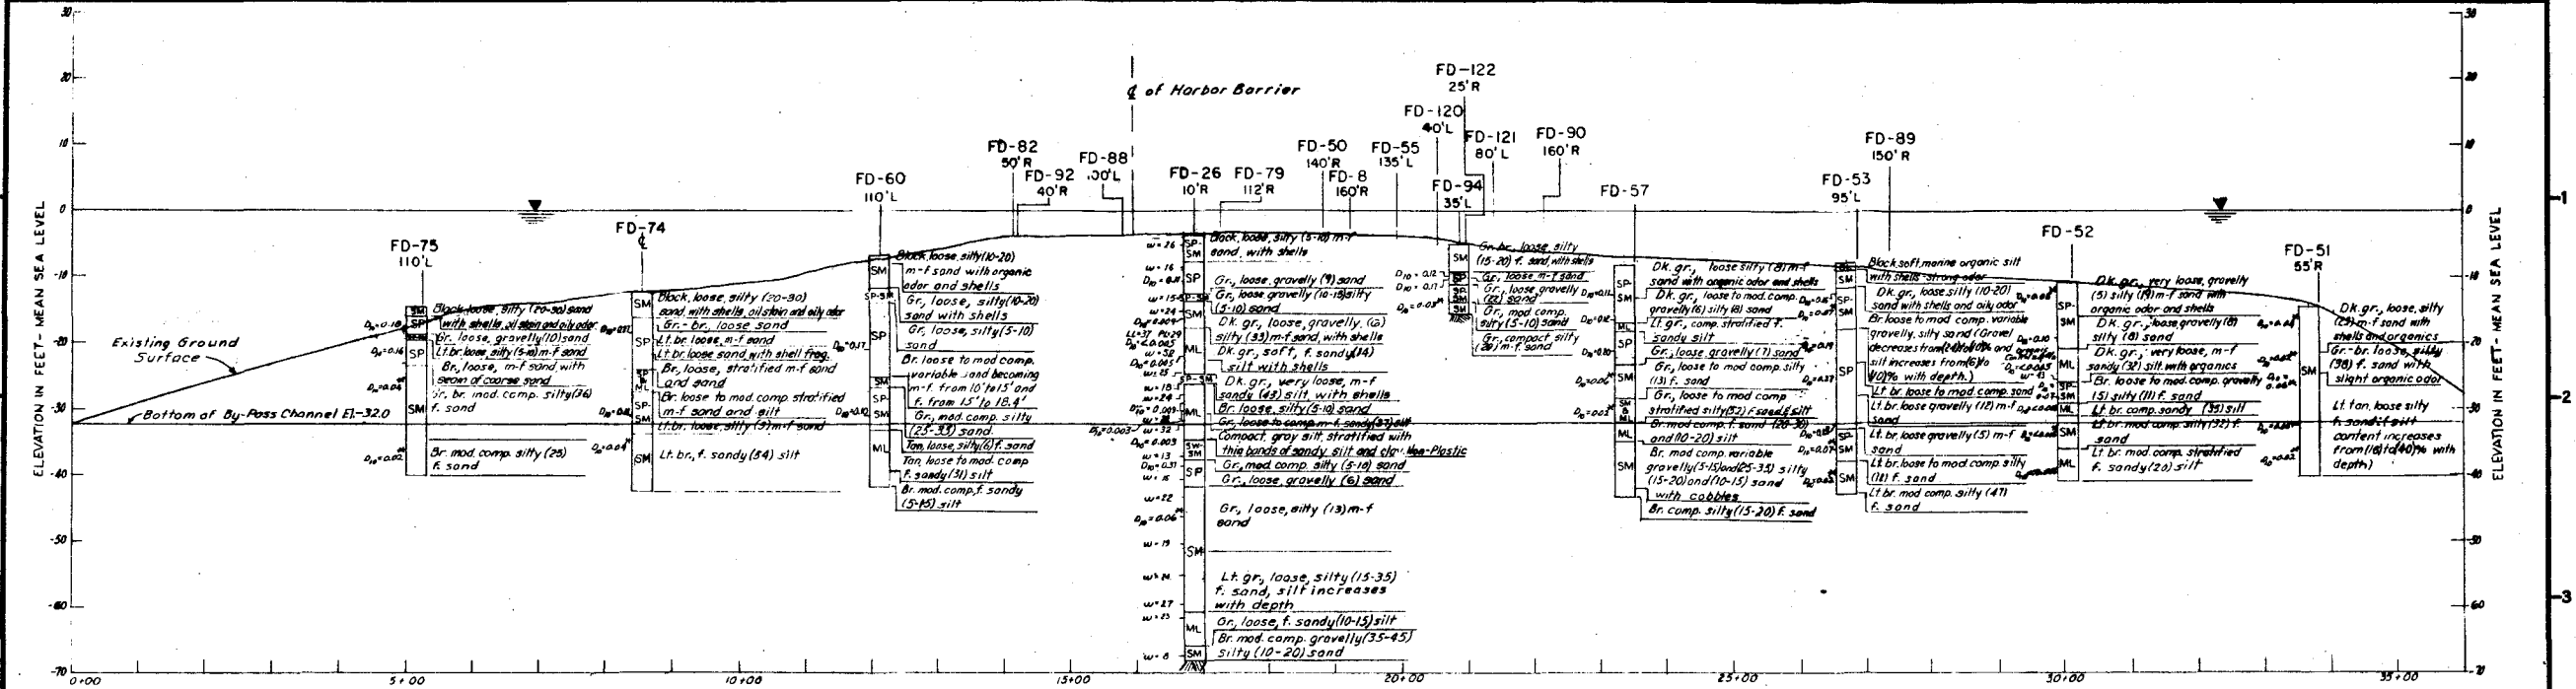 ELEVATION IN FEET - MEAN SEA LEVEL
30
20
10
0
-10
-20
-30
-40
-50
-60
-70
Existing Ground
Surface
Bottom of By-Pass Channel El.-32.0
℄ of Harbor Barrier
FD-75
110'L
SM
SP
SP
SM
Black, loose, silty (20-30) sand
with shells, oil stain and oily odor
Gr. loose, gravelly (10) sand
Lt. br. loose, silty (5-10) m-f sand
Br., loose, m-f sand, with
seam of coarse sand
Gr. br. mod. comp. silty (36)
f. sand
Br. mod. comp. silty (25)
f. sand
FD-74
℄
SM
SP
ML
SP
SM
SM
Black, loose, silty (20-30)
sand, with shells, oil stain and oily odor
Gr.-br., loose sand
Lt. br. loose, m-f sand
Lt. br. loose sand, with shell frag.
Br., loose, stratified m-f sand
and sand
Br. loose to mod comp stratified
m-f sand and silt
Lt. br. loose, silty (9) m-f sand
Lt. br., f. sandy (54) silt
FD-60
110'L
SM
SP-SM
SP
SM
SP-
SM
ML
Black, loose, silty (10-20)
m-f sand with organic
odor and shells
Gr., loose, silty (10-20)
sand with shells
Gr., loose, silty (5-10)
sand
Br. loose to mod comp.
variable sand becoming
m-f. from 10' to 15' and
f. from 15' to 18.4'
Gr., mod. comp. silty
(25-35) sand
Tan, loose, silty (6) f. sand
Tan, loose to mod. comp
f. sandy (31) silt
Br. mod. comp, f. sandy
(5-15) silt
FD-82
50'R
FD-92
40'R
FD-88
100'L
FD-26
10'R
FD-79
112'R
FD-50
140'R
FD-8
160'R
FD-55
135'L
FD-120
40'L
FD-122
25'R
FD-121
80'L
FD-90
160'R
w=26
w=16
w=24
w=32
w=18
w=24
w=32
w=13
w=22
w=19
w=27
w=23
w=8
SP-
SM
SP
SP-SM
SM
ML
SP-SM
ML
SW-
SM
SP
SM
ML
SM
Black, loose, silty (5-10) m-f
sand, with shells
Gr., loose, gravelly (9) sand
Gr., loose, gravelly (10-15) silty
(5-10) sand
Dk. gr., loose, gravelly,
silty (33) m-f sand, with shells
Dk. gr., soft, f. sandy (14)
silt with shells
Dk. gr., very loose, m-f
sandy (43) silt, with shells
Br. loose, silty (5-10) sand
Gr., loose to comp. m-f. sandy silt
Compact, gray silt, stratified with
thin bands of sandy silt and clay. Non-Plastic
Gr., mod. comp. silty (5-10) sand
Gr., loose, gravelly (6) sand
Gr., loose, silty (13) m-f
sand
Lt. gr., loose, silty (15-35)
f. sand, silt increases
with depth
Gr., loose, f. sandy (10-15) silt
Br. mod. comp. gravelly (35-45)
silty (10-20) sand
FD-94
35'L
SM
SP
SM
Gr.-br., loose, silty
(15-20) f. sand, with shells
Gr., loose m-f sand
Gr., loose, gravelly
(22) sand
Gr., mod comp.
silty (5-10) sand
Gr., compact silty
m-f. sand
FD-57
SP-
SM
ML
SP
SM
ML
SM
Dk. gr., loose silty (8) m-f
sand with organic odor and shells
Dk. gr., loose to mod. comp.
gravelly (6) silty (8) sand
Lt. gr., comp. stratified f.
sandy silt
Gr., loose, gravelly (7) sand
Gr., loose to mod comp. silty
(13) f. sand
Gr., loose to mod comp
stratified silty (32) f sand & silt
Br. mod comp. f. sand (20-30)
and (10-20) silt
Br. mod comp. variable
gravelly (5-15) and (25-35) silty
(15-20) and (10-15) sand
with cobbles
Br. comp. silty (15-20) f. sand
FD-53
95'L
FD-89
150'R
SP-
SM
SP
SM
SP-
SM
SM
Black, soft, marine organic silt
with shells-strong odor
Dk. gr., loose, silty (10-20)
sand with shells and oily odor
Br. loose to mod comp. variable
gravelly, silty sand (Gravel
silt increases from (6) to
(10)% with depth.)
Lt. br. loose to mod comp. sand
Lt. br. loose gravelly (12) m-f
sand
Lt. br. loose gravelly (5) m-f
sand
Lt. br. loose to mod comp. silty
(18) f. sand
Lt. br. mod comp. silty (47)
f. sand
FD-52
SP-
SM
ML
SP-
SM
ML
SM
ML
Dk. gr., very loose, gravelly
(5) silty (19) m-f sand with
organic odor and shells
Dk. gr., loose gravelly (8)
silty (8) sand
Dk. gr., very loose, m-f
sandy (32) silt with organics
Br. loose to mod comp. gravelly
(15) silty (11) f. sand
Lt. br. comp. sandy (35) silt
Lt. br. mod comp. silty (32) f.
sand
Lt. br. mod comp. stratified
f. sandy (20) silt
FD-51
55'R
SM
Dk. gr., loose, silty
(23) m-f sand with
shells and organics
Gr.-br. loose, silty
(38) f. sand with
slight organic odor
Lt. tan, loose silty
f. sand (silt
content increases
from (18) to (40)% with
depth)
30
20
10
0
-10
-20
-30
-40
-50
-60
-70
ELEVATION IN FEET - MEAN SEA LEVEL
0+00
5+00
10+00
15+00
20+00
25+00
30+00
35+00
1
2
3